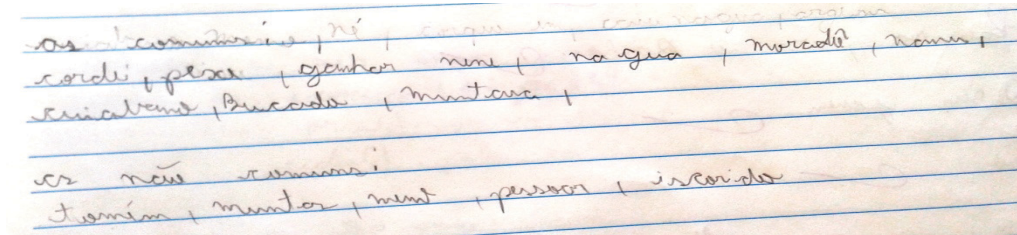 as comuns:, né,
cordei, pexe, ganhar nene, na gua, moradô,
cuiabano, Bucado, muntava,
as não comuns:
tomém, muntos, ment, pessoar, iscorido